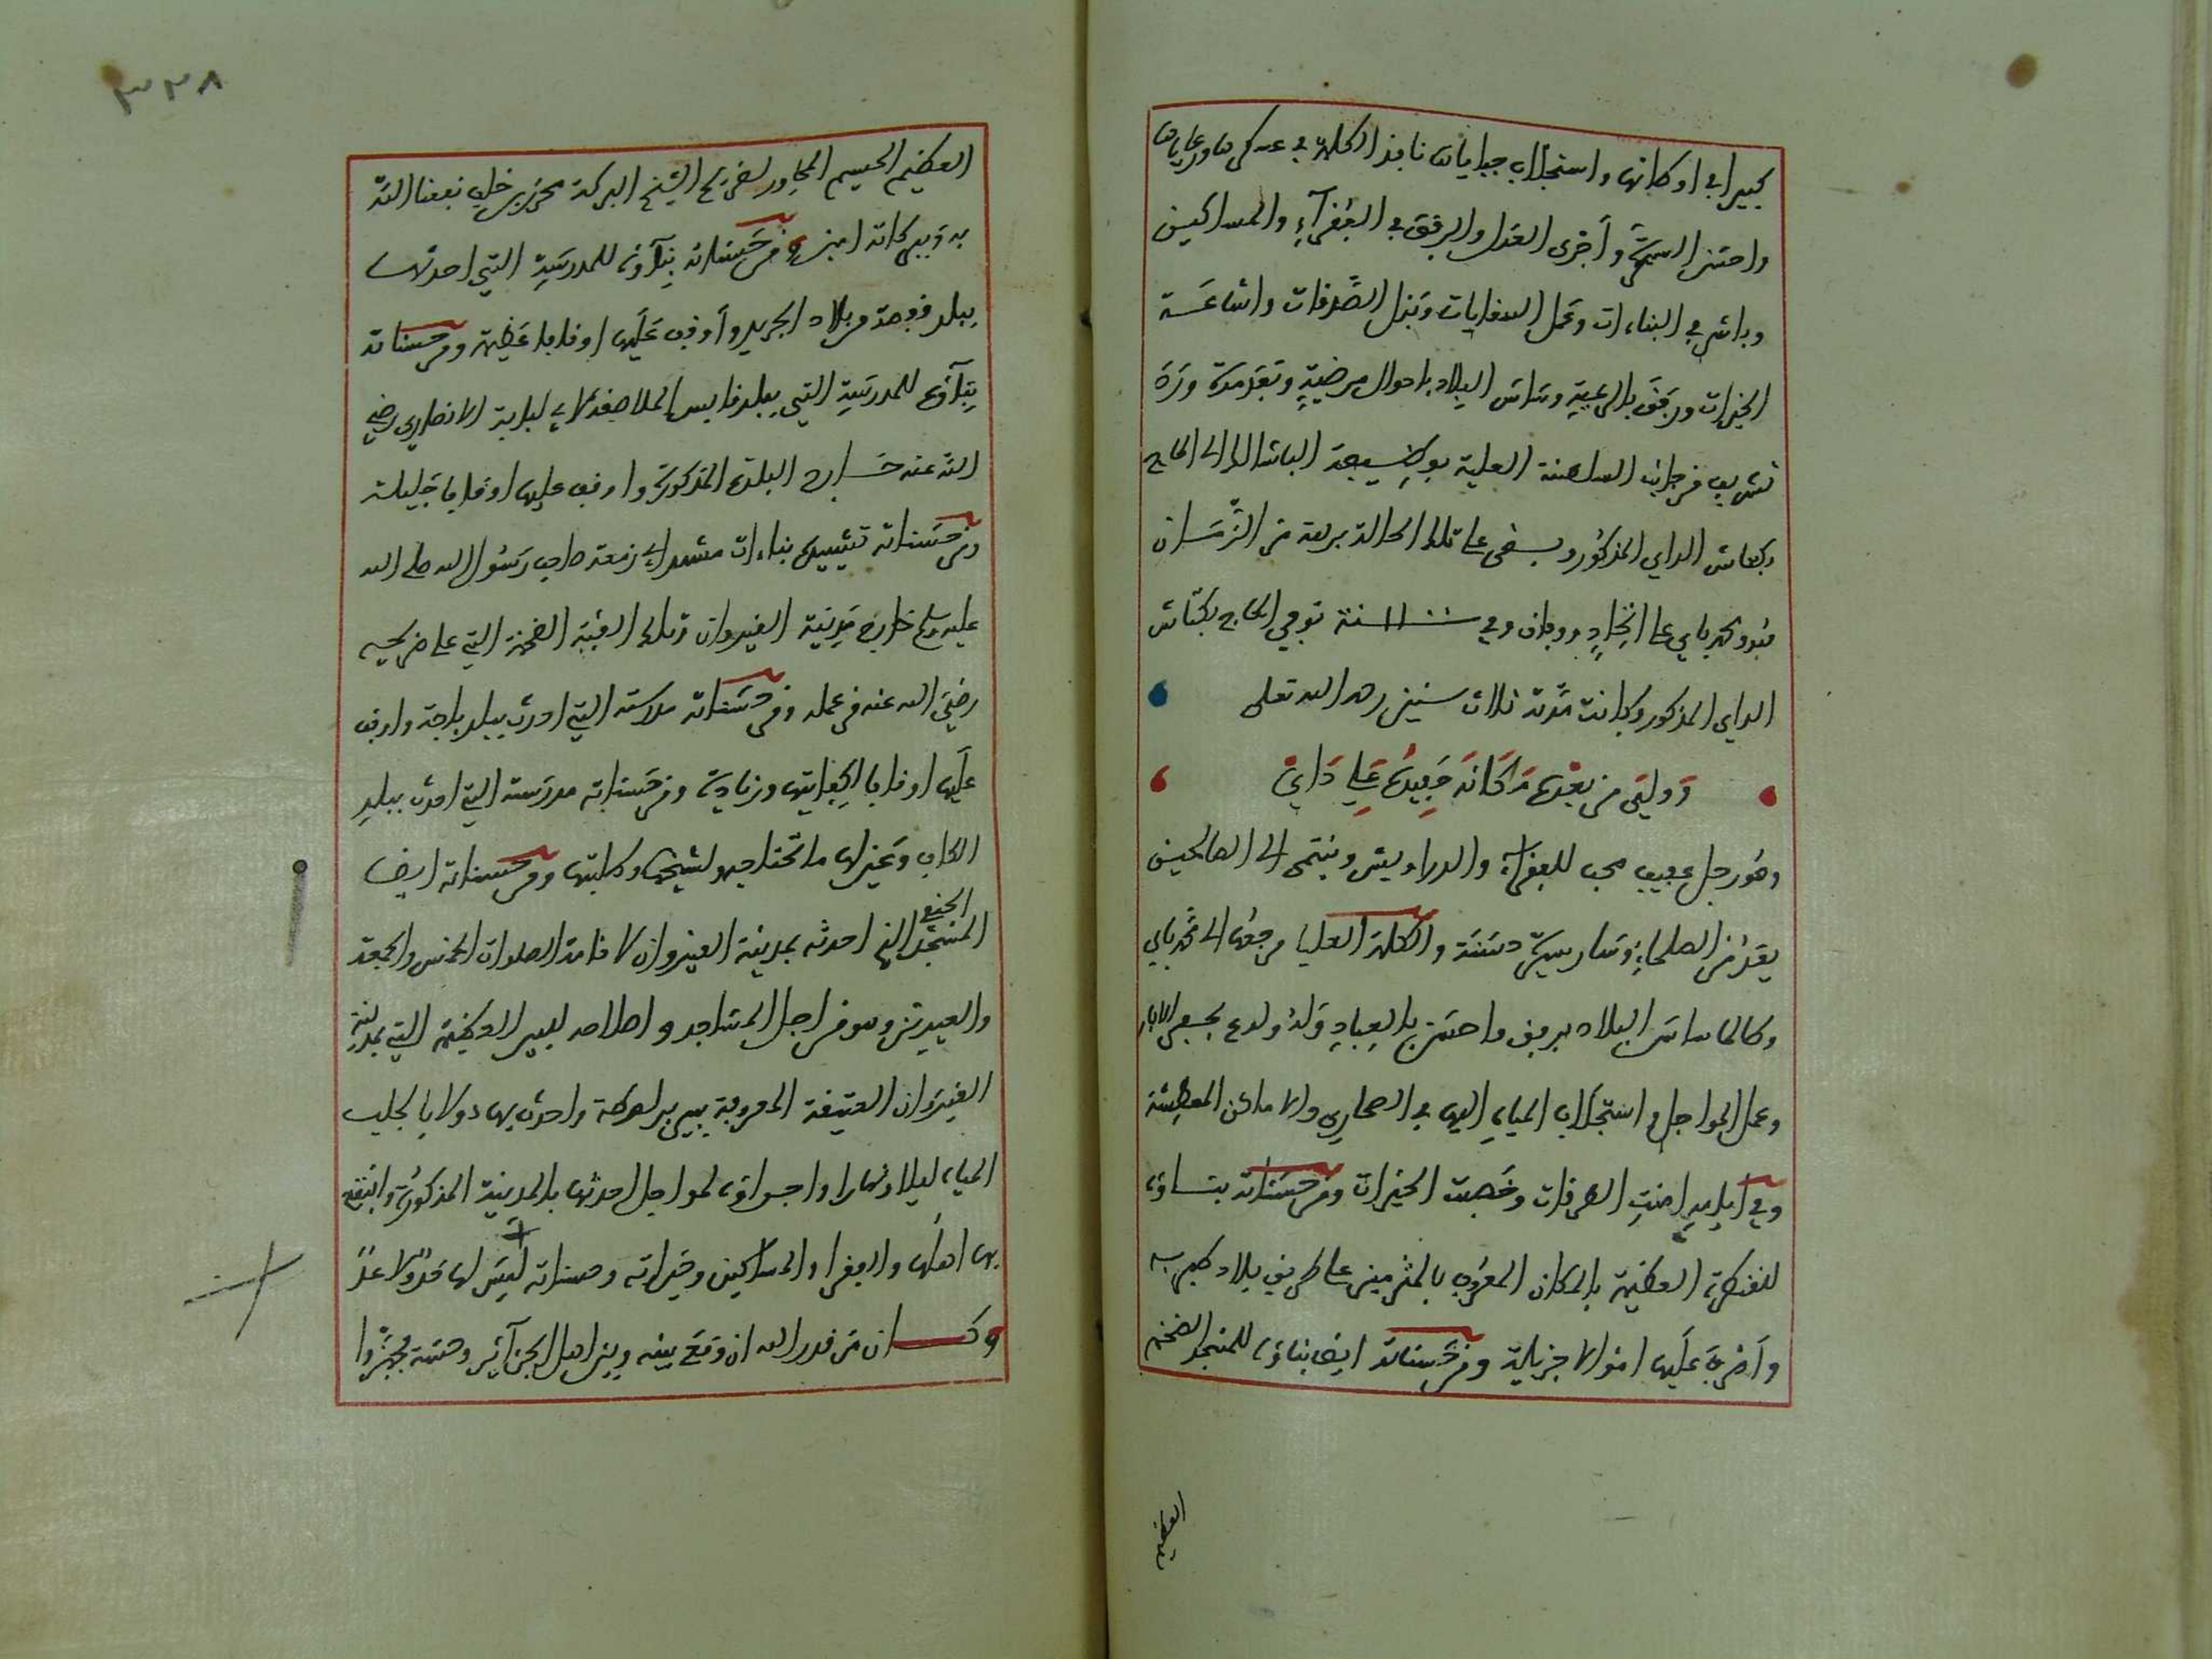 كبيرا في اوطانها واستجلاب جبايات نافذ الكلمة في عسكرها ورعاياها
واحسن السيرة وأجرى العدل والرفق في الفقرآء والمساكين
وباشر في البناءات وعمل السقايات وبذل الصدقات واشاعة
الخيرات ورفق بالرعية وساس البلاد باحوال مرضية وبعد مدة ورد
تشريف من جانب السلطنة العلية بوظيفة الباشا الى الحاج
بكطاش الداي المذكور وبقي على تلك الحالة برهة من الزمان
هو ومحمد باي على اتحاد ووفاق وفي سنة ١١٠٠ توفي الحاج بكتاش
الداي المذكور وكانت مدته ثلاث سنين رحمه الله تعلى
وولي من بعده مكانه حفيده علي داي
وهو رجل عفيف محب للفقراء والدراويش وينتمي الى الصالحين
يعد من الصلحاء وسار سيرة حسنة والكلمة العليا مرجعها الى محمد باي
وكالما ساس البلاد برفق واحسن بالعباد وله ولوع بحفر الابار
وعمل المواجل واستجلاب المياه اليها في الصحاري والاماكن المعطشة
وفي ايامه امنت الطرقات وخصبت الخيرات ومن حسناته بناؤه
للقنطرة العظيمة بالمكان المعروف بالمثرمين على طريق بلاد طبربه
وأصرف عليها اموالا جزيلة ومن حسناته ايضا بناؤه للمسجد الضخم
العظيم
٣٢٨
العظيم الجسيم المجاور لضريح الشيخ البركة محرز بن خلف نفعنا الله
به وببركاته امين ومن حسناته بنآؤه للمدرسة التي احدثها
ببلد قفصة من بلاد الجريد وأوقف عليها اوقافا عظيمة ومن حسناته
بنآؤه للمدرسة التي ببلد قابس الملاصقة لابي لبابة الانصاري رضي
الله عنه خارج البلدة المذكورة واوقف عليها اوقافا جليلة
ومن حسناته تشييده بناءات مشهد ابي زمعة صاحب رسول الله صلى الله
عليه وسلم خارج مدينة القيروان وتلك القبة الضخمة التي على ضريحه
رضي الله عنه من عمله ومن حسناته مدرسته التي احدث ببلد باجة واوقف
عليها اوقافا لكفايتها وزيادة ومن حسناته مدرسته التي احدث ببلد
الكاف وعين لها ما تحتاجه لشيخها وطلبتها ومن حسناته ايضا
المسجد الحنفي الذي احدثه بمدينة القيروان لاقامة الصلوات الخمس والجمعة
والعيدين وهو من اجل المساجد واصلاحه لبير العظيمة التي بمدينة
القيروان العتيقة المعروفة ببير بروطة واحدث بها دولابا لجلب
المياه ليلا ونهارا واجراؤه لمواجل احدثها بالمدينة المذكورة وانتفع
بها اهلها والفقرا والمساكين وخيراته وحسناته ليس لها حد ولا عد
وكان من قدر الله ان وقع بينه وبين اهل الجزآئر وحشة فجهزوا